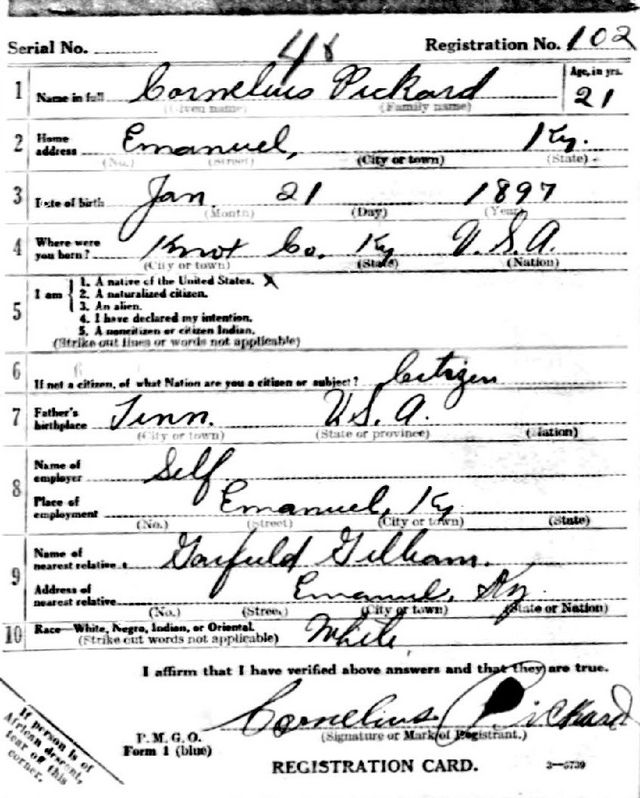 Serial No. 48 Registration No. 102
1 Name in full Cornelius Pickard Age, in yrs.
(Given name) (Family name) 21
2 Home address Emanuel, Ky.
(No.) (Street) (City or town) (State)
3 Date of birth Jan. 21 1897
(Month) (Day) (Year)
4 Where were you born? Knox Co. Ky U.S.A.
(City or town) (State) (Nation)
5 I am
1. A native of the United States. X
2. A naturalized citizen.
3. An alien.
4. I have declared my intention.
5. A noncitizen or citizen Indian.
(Strike out lines or words not applicable)
6 If not a citizen, of what Nation are you a citizen or subject? Citizen
7 Father's birthplace Tenn. U.S.A.
(City or town) (State or province) (Nation)
8 Name of employer Self
Place of employment Emanuel, Ky
(No.) (Street) (City or town) (State)
9 Name of nearest relative Garfield Gilliam.
Address of nearest relative Emanuel, Ky.
(No.) (Street) (City or town) (State or Nation)
10 Race—White, Negro, Indian, or Oriental. White
(Strike out words not applicable)
I affirm that I have verified above answers and that they are true.
Cornelius Pickard
P. M. G. O. (Signature or Mark of Registrant.)
Form 1 (blue)
REGISTRATION CARD. 3—6739
If person is of
African descent,
tear off this
corner.